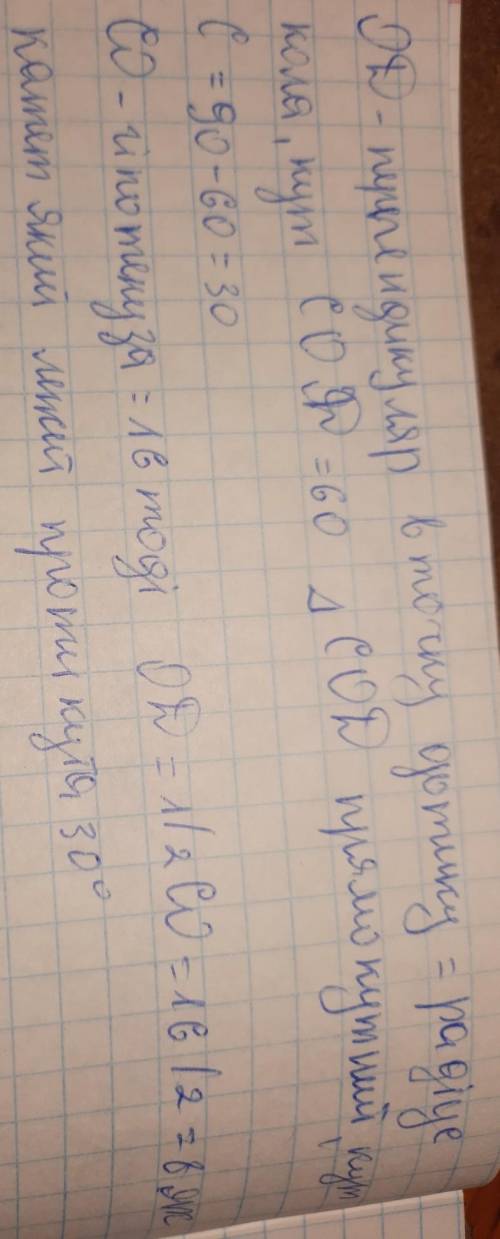 ОД - перпендикуляр в точку дотику = радіус
кола, кут СОД = 60 Δ СОД прямокутний, кут
С = 90 - 60 = 30
СО - гіпотенуза = 16 тоді ОД = 1/2 СО = 16/2 = 8 як
катет який лежит проти кута 30°